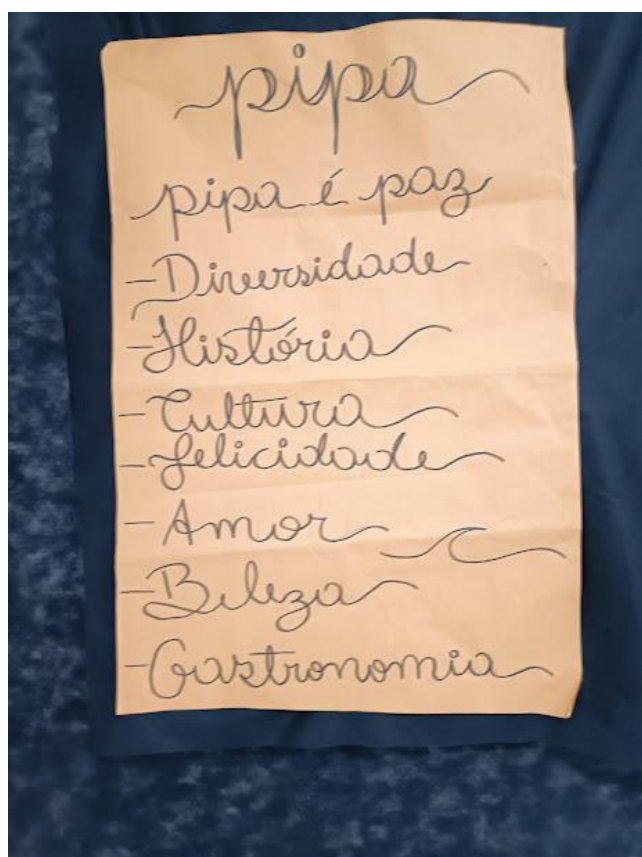 pipa
pipa é paz
- Diversidade
- História
- Cultura
- felicidade
- Amor
- Beleza
- Gastronomia